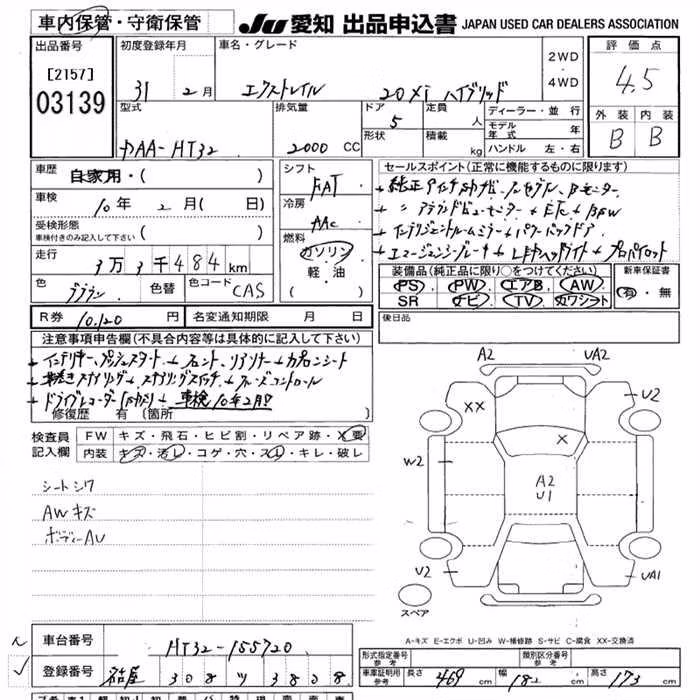 車内保管・守衛保管 JU 愛知 出品申込書 JAPAN USED CAR DEALERS ASSOCIATION
出品番号 初度登録年月 車名・グレード 評価点
[2157] 31 2月 エクストレイル 20Xi ハイブリッド 2WD・4WD 4.5
03139 型式 排気量 ドア 定員 人 ディーラー・並行 外装 内装
DAA-HT32 2000 CC 5 形状 積載 kg モデル年式 年 B B
ハンドル 左・右
車歴 自家用・( ) シフト FAT セールスポイント(正常に機能するものに限ります)
車検 10年 2月( 日) 冷房 AAC
受検形態 車検付きのみ記入して下さい ( )
燃料 ガソリン 軽・油 ( )
走行 3万3千484km
色 ブラウン 色替 色コード CAS
+エマージェンシーブレーキ+LEDヘッドライト+プロパイロット
装備品(純正品に限り○をつけてください) 新車保証書
PS PW エアB AW 有・無
SR ナビ TV カワシート
R券 10,120 円 名変通知期限 月 日 後日品
注意事項申告欄(不具合内容等は具体的に記入して下さい)
+インテリキー、プッシュスタート+フロント、リアソナー+カプロンシート
+ステアリングスイッチ+クルーズコントロール
+ドライブレコーダー +車検10年2月
修復歴 有 (箇所 )
検査員記入欄 FW キズ・飛石・ヒビ割・リペア跡・X要
内装 キズ・汚レ・コゲ・穴・スレ・キレ・破レ
シートシワ
AWキズ
ボディーAU
A2 UA2
XX U2
X
W2 A2
U1
U2 UA1
スペア
A-キズ E-エクボ U-凹み W-補修跡 S-サビ C-腐食 XX-交換済
車台番号 HT32-155720
登録番号 名古屋 308 ツ 3808
形式指定番号 参考 類別区分番号 参考
車庫証明用 参考 長さ 469 cm 幅 182 cm 高さ 173 cm